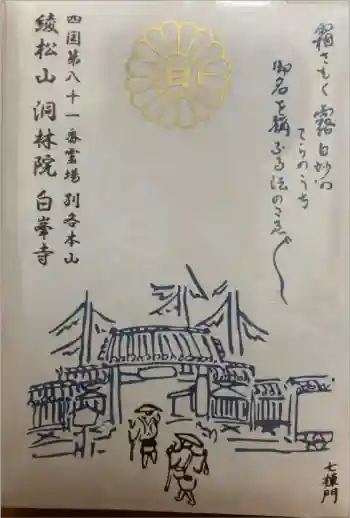 霜さむく露白妙の
てらのうち
御名を称ふる法のこゑ〴〵
四国第八十一番霊場別格本山
綾松山 洞林院 白峯寺
七棟門